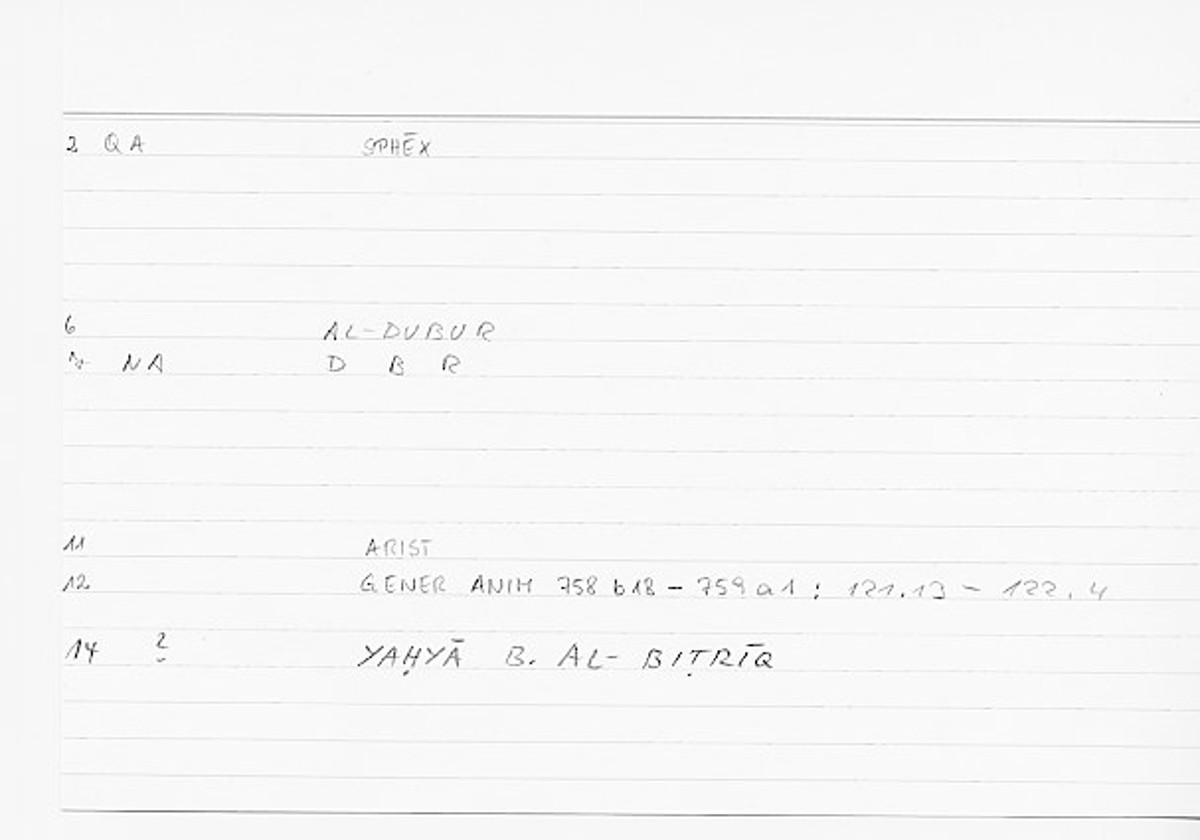 2 QA SPHĒX
6 AL-DUBUR
7 NA D B R
11 ARIST
12 GENER ANIM 758 b18 – 759 a1 : 121.13 – 122.4
14 2 YAḤYĀ B. AL-BIṬRĪQ